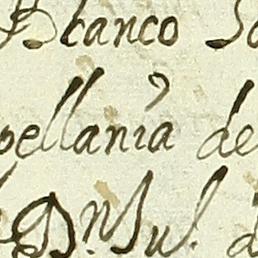 Blanco
pellanía de
Dn. Jul. d